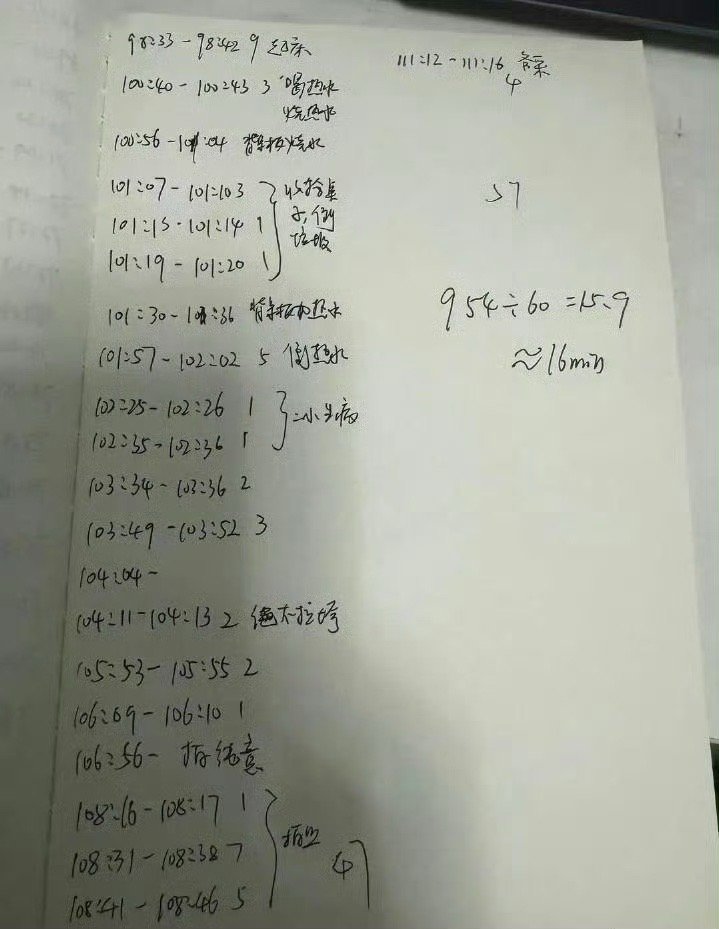 98:33 - 98:42 9 起床
100:40 - 100:43 3 喝热水
烧热水
100:56 - 101:04 烧水
101:07 - 101:103 收拾桌
子,倒
垃圾
101:13 - 101:14 1
101:19 - 101:20 1
101:30 - 101:36 热水
101:57 - 102:02 5 倒热水
102:25 - 102:26 1
102:35 - 102:36 1
103:34 - 103:36 2
103:49 - 103:52 3
104:04 -
104:11 - 104:13 2
105:53 - 105:55 2
106:09 - 106:10 1
106:56 -
108:16 - 108:17 1
108:31 - 108:38 7
108:41 - 108:46 5
47
111:12 - 111:16 备菜
4
57
954÷60=15.9
≈16min